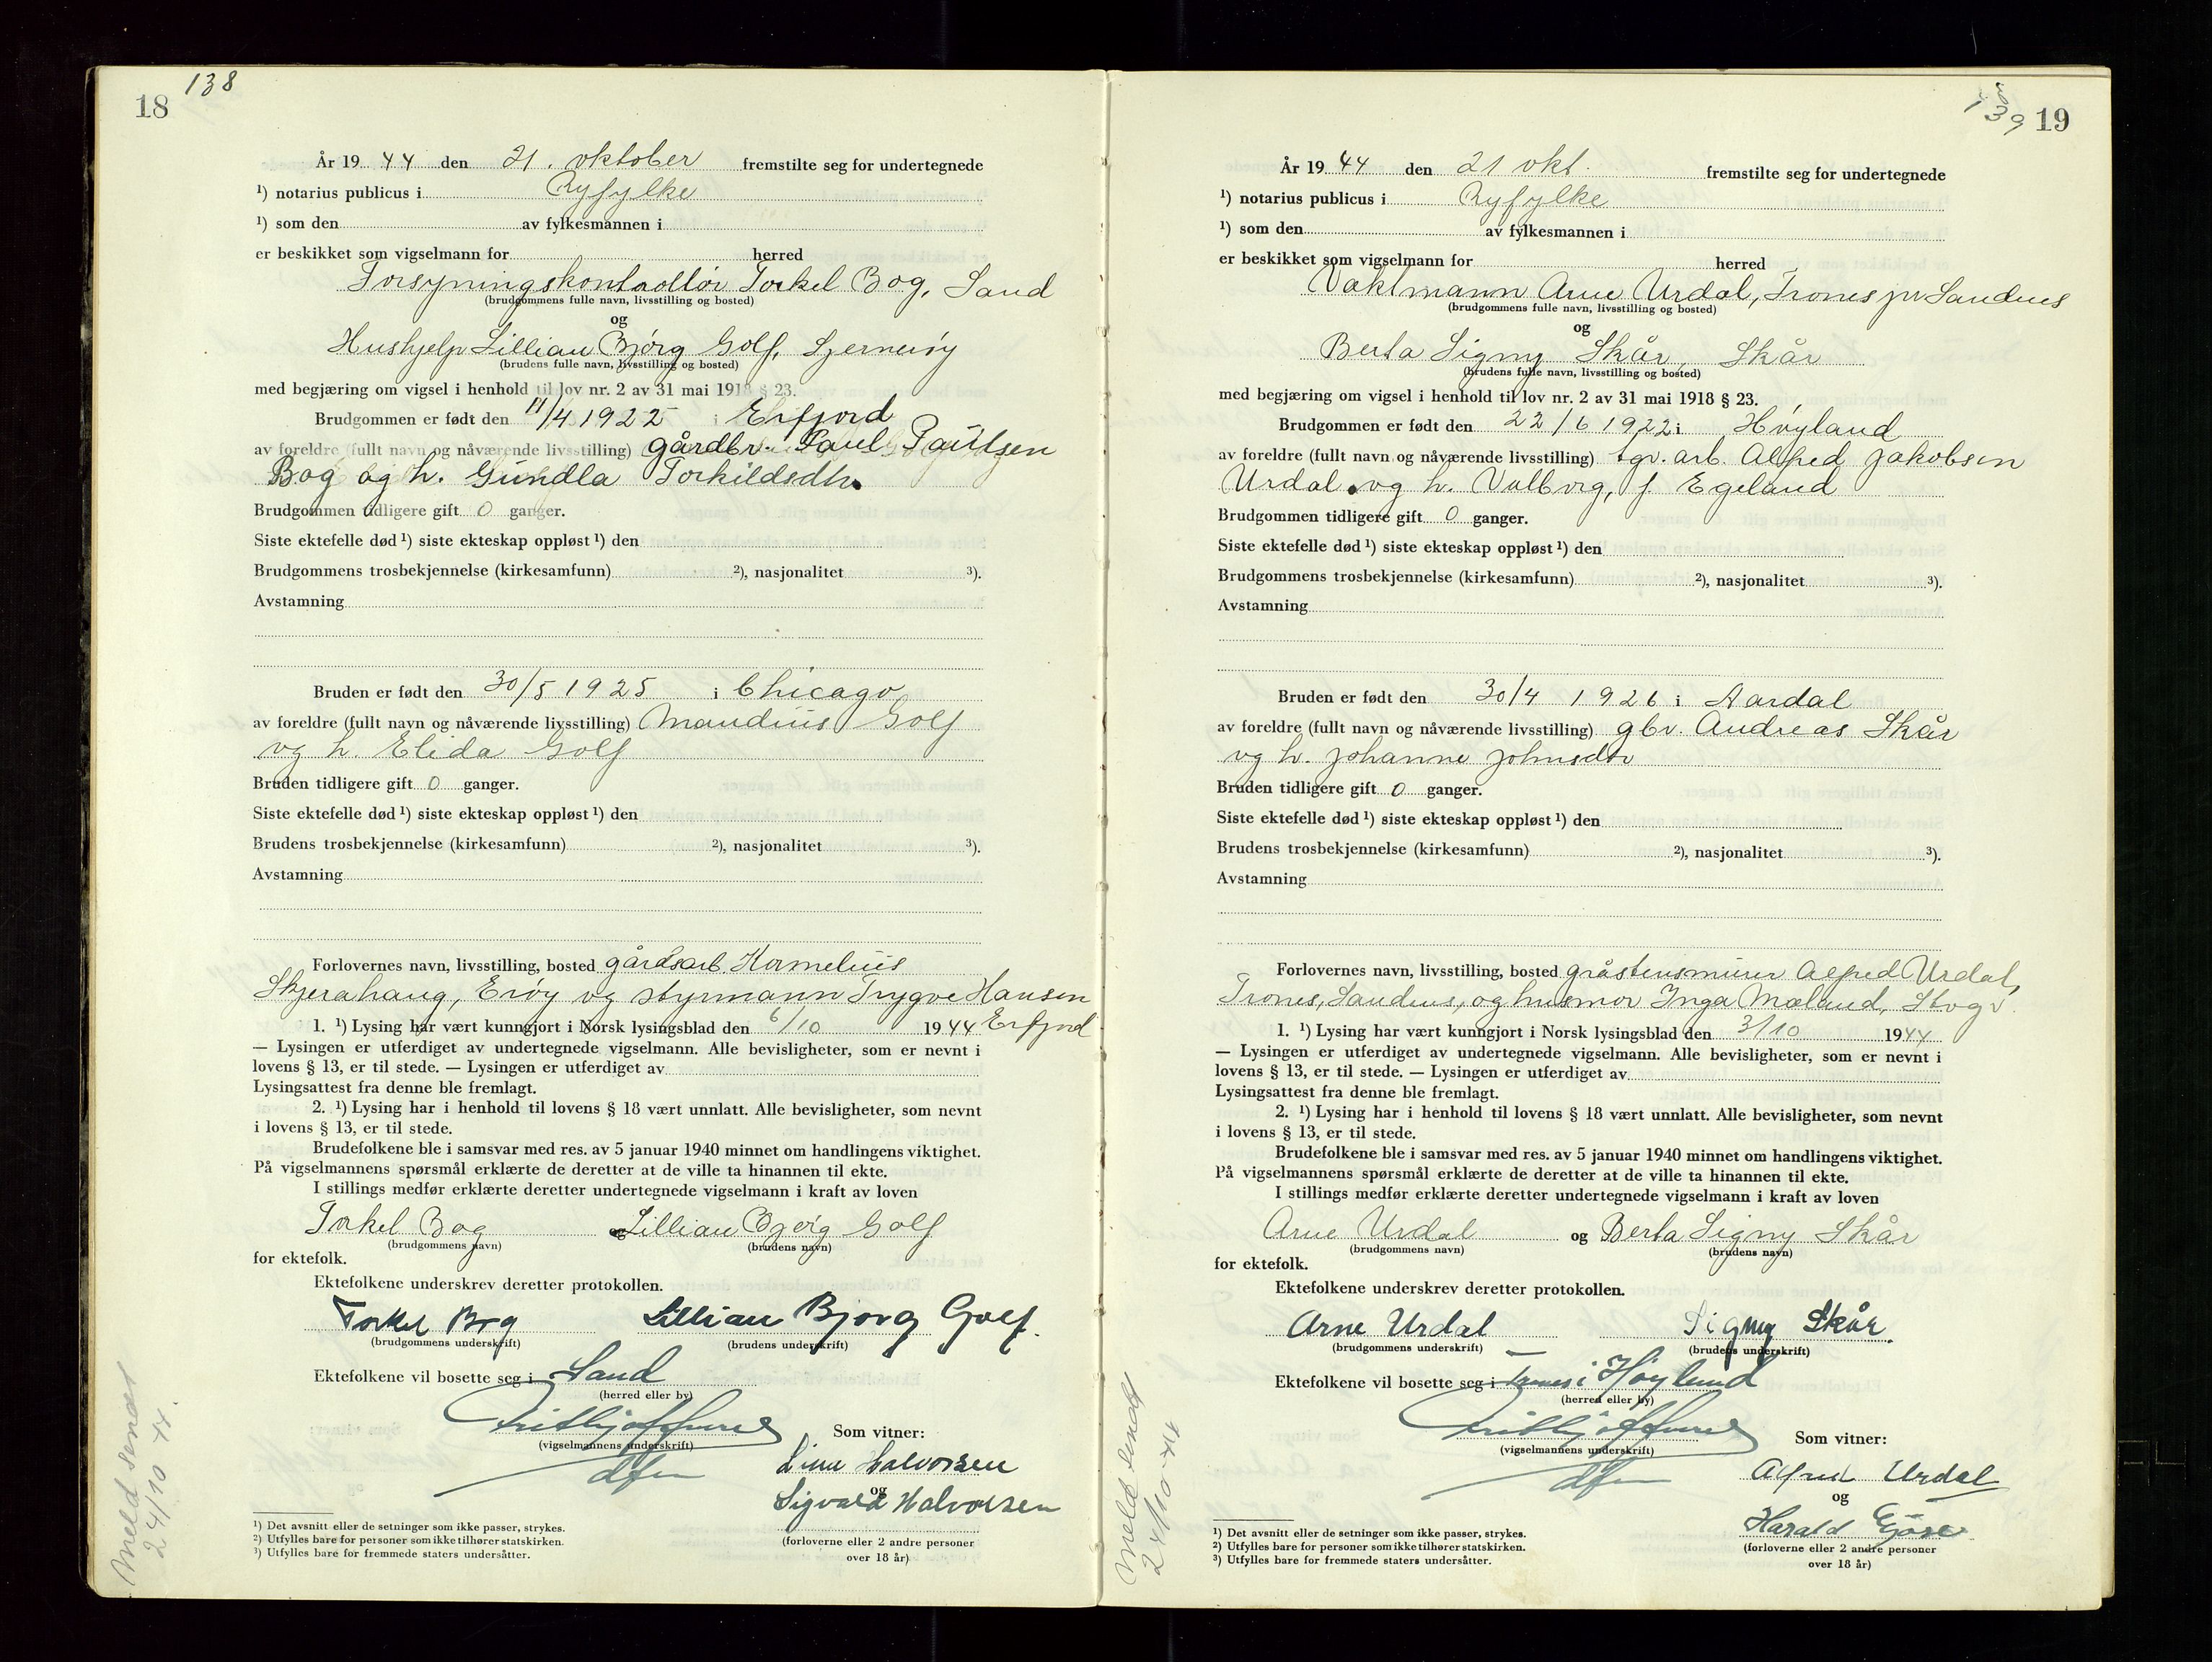 138
18
År 1944 den 21. oktober fremstilte seg for undertegnede
¹) notarius publicus i Ryfylke
¹) som den av fylkesmannen i
er beskikket som vigselmann for herred
Forsyningskontrollør Torkel Bog, Sand
(brudgommens fulle navn, livsstilling og bosted)
og
Hushjelp Lillian Bjørg Golf, Sjernerøy
(brudens fulle navn, livsstilling og bosted)
med begjæring om vigsel i henhold til lov nr. 2 av 31 mai 1918 § 23.
Brudgommen er født den 11/4 1922 i Erfjord
av foreldre (fullt navn og nåværende livsstilling) gårdbr. Paul Paulsen
Bog og h. Gundla Torkildsdtr.
Brudgommen tidligere gift 0 ganger.
Siste ektefelle død ¹) siste ekteskap oppløst ¹) den
Brudgommens trosbekjennelse (kirkesamfunn) ²), nasjonalitet ³).
Avstamning
Bruden er født den 30/5 1925 i Chicago
av foreldre (fullt navn og nåværende livsstilling) Maudius Golf
og h. Elida Golf
Bruden tidligere gift 0 ganger.
Siste ektefelle død ¹) siste ekteskap oppløst ¹) den
Brudens trosbekjennelse (kirkesamfunn) ²), nasjonalitet ³).
Avstamning
Forlovernes navn, livsstilling, bosted gårdsarb. Kornelius
Skjerahaug, Erøy og styrmann Trygve Hansen
1. ¹) Lysing har vært kunngjort i Norsk lysingsblad den 6/10 1944 Erfjord
— Lysingen er utferdiget av undertegnede vigselmann. Alle bevisligheter, som er nevnt i
lovens § 13, er til stede. — Lysingen er utferdiget av
Lysingsattest fra denne ble fremlagt.
2. ¹) Lysing har i henhold til lovens § 18 vært unnlatt. Alle bevisligheter, som nevnt
i lovens § 13, er til stede.
Brudefolkene ble i samsvar med res. av 5 januar 1940 minnet om handlingens viktighet.
På vigselmannens spørsmål erklærte de deretter at de ville ta hinannen til ekte.
I stillings medfør erklærte deretter undertegnede vigselmann i kraft av loven
Torkel Bog og Lillian Bjørg Golf
(brudgommens navn) (brudens navn)
for ektefolk.
Ektefolkene underskrev deretter protokollen.
Torkel Bog Lillian Bjorg Golf.
(brudgommens underskrift) (brudens underskrift)
Ektefolkene vil bosette seg i Sand
(herred eller by)
(vigselmannens underskrift)
dfm
Som vitner:
Line Halvorsen
og
Sigvald Halvorsen
(forloverne eller 2 andre personer
over 18 år)
¹) Det avsnitt eller de setninger som ikke passer, strykes.
²) Utfylles bare for personer som ikke tilhører statskirken.
³) Utfylles bare for fremmede staters undersåtter.
Meld sendt
24/10 44.
139
19
År 1944 den 21 okt. fremstilte seg for undertegnede
¹) notarius publicus i Ryfylke
¹) som den av fylkesmannen i
er beskikket som vigselmann for herred
Vaktmann Arne Urdal, Trones pr Sandnes
(brudgommens fulle navn, livsstilling og bosted)
og
Berta Signy Skår, Skår
(brudens fulle navn, livsstilling og bosted)
med begjæring om vigsel i henhold til lov nr. 2 av 31 mai 1918 § 23.
Brudgommen er født den 22/6 1922 i Høyland
av foreldre (fullt navn og nåværende livsstilling) tgv. arb. Alfred Jakobsen
Urdal og h. Valborg, f. Egeland
Brudgommen tidligere gift 0 ganger.
Siste ektefelle død ¹) siste ekteskap oppløst ¹) den
Brudgommens trosbekjennelse (kirkesamfunn) ²), nasjonalitet ³).
Avstamning
Bruden er født den 30/4 1926 i Aardal
av foreldre (fullt navn og nåværende livsstilling) gbr. Andreas Skår
og h. Johanne Johnsdtr
Bruden tidligere gift 0 ganger.
Siste ektefelle død ¹) siste ekteskap oppløst ¹) den
Brudens trosbekjennelse (kirkesamfunn) ²), nasjonalitet ³).
Avstamning
Forlovernes navn, livsstilling, bosted gråstensmurer Alfred Urdal,
Trones, Sandnes, og husmor Inga Mæland, Stvgr.
1. ¹) Lysing har vært kunngjort i Norsk lysingsblad den 3/10 1944
— Lysingen er utferdiget av undertegnede vigselmann. Alle bevisligheter, som er nevnt i
lovens § 13, er til stede. — Lysingen er utferdiget av
Lysingsattest fra denne ble fremlagt.
2. ¹) Lysing har i henhold til lovens § 18 vært unnlatt. Alle bevisligheter, som nevnt
i lovens § 13, er til stede.
Brudefolkene ble i samsvar med res. av 5 januar 1940 minnet om handlingens viktighet.
På vigselmannens spørsmål erklærte de deretter at de ville ta hinannen til ekte.
I stillings medfør erklærte deretter undertegnede vigselmann i kraft av loven
Arne Urdal og Berta Signy Skår
(brudgommens navn) (brudens navn)
for ektefolk.
Ektefolkene underskrev deretter protokollen.
Arne Urdal Signy Skår.
(brudgommens underskrift) (brudens underskrift)
Ektefolkene vil bosette seg i Trones i Høyland
(herred eller by)
(vigselmannens underskrift)
dfm
Som vitner:
Alfred Urdal
og
Harald
(forloverne eller 2 andre personer
over 18 år)
¹) Det avsnitt eller de setninger som ikke passer, strykes.
²) Utfylles bare for personer som ikke tilhører statskirken.
³) Utfylles bare for fremmede staters undersåtter.
Meld sendt
24/10 44